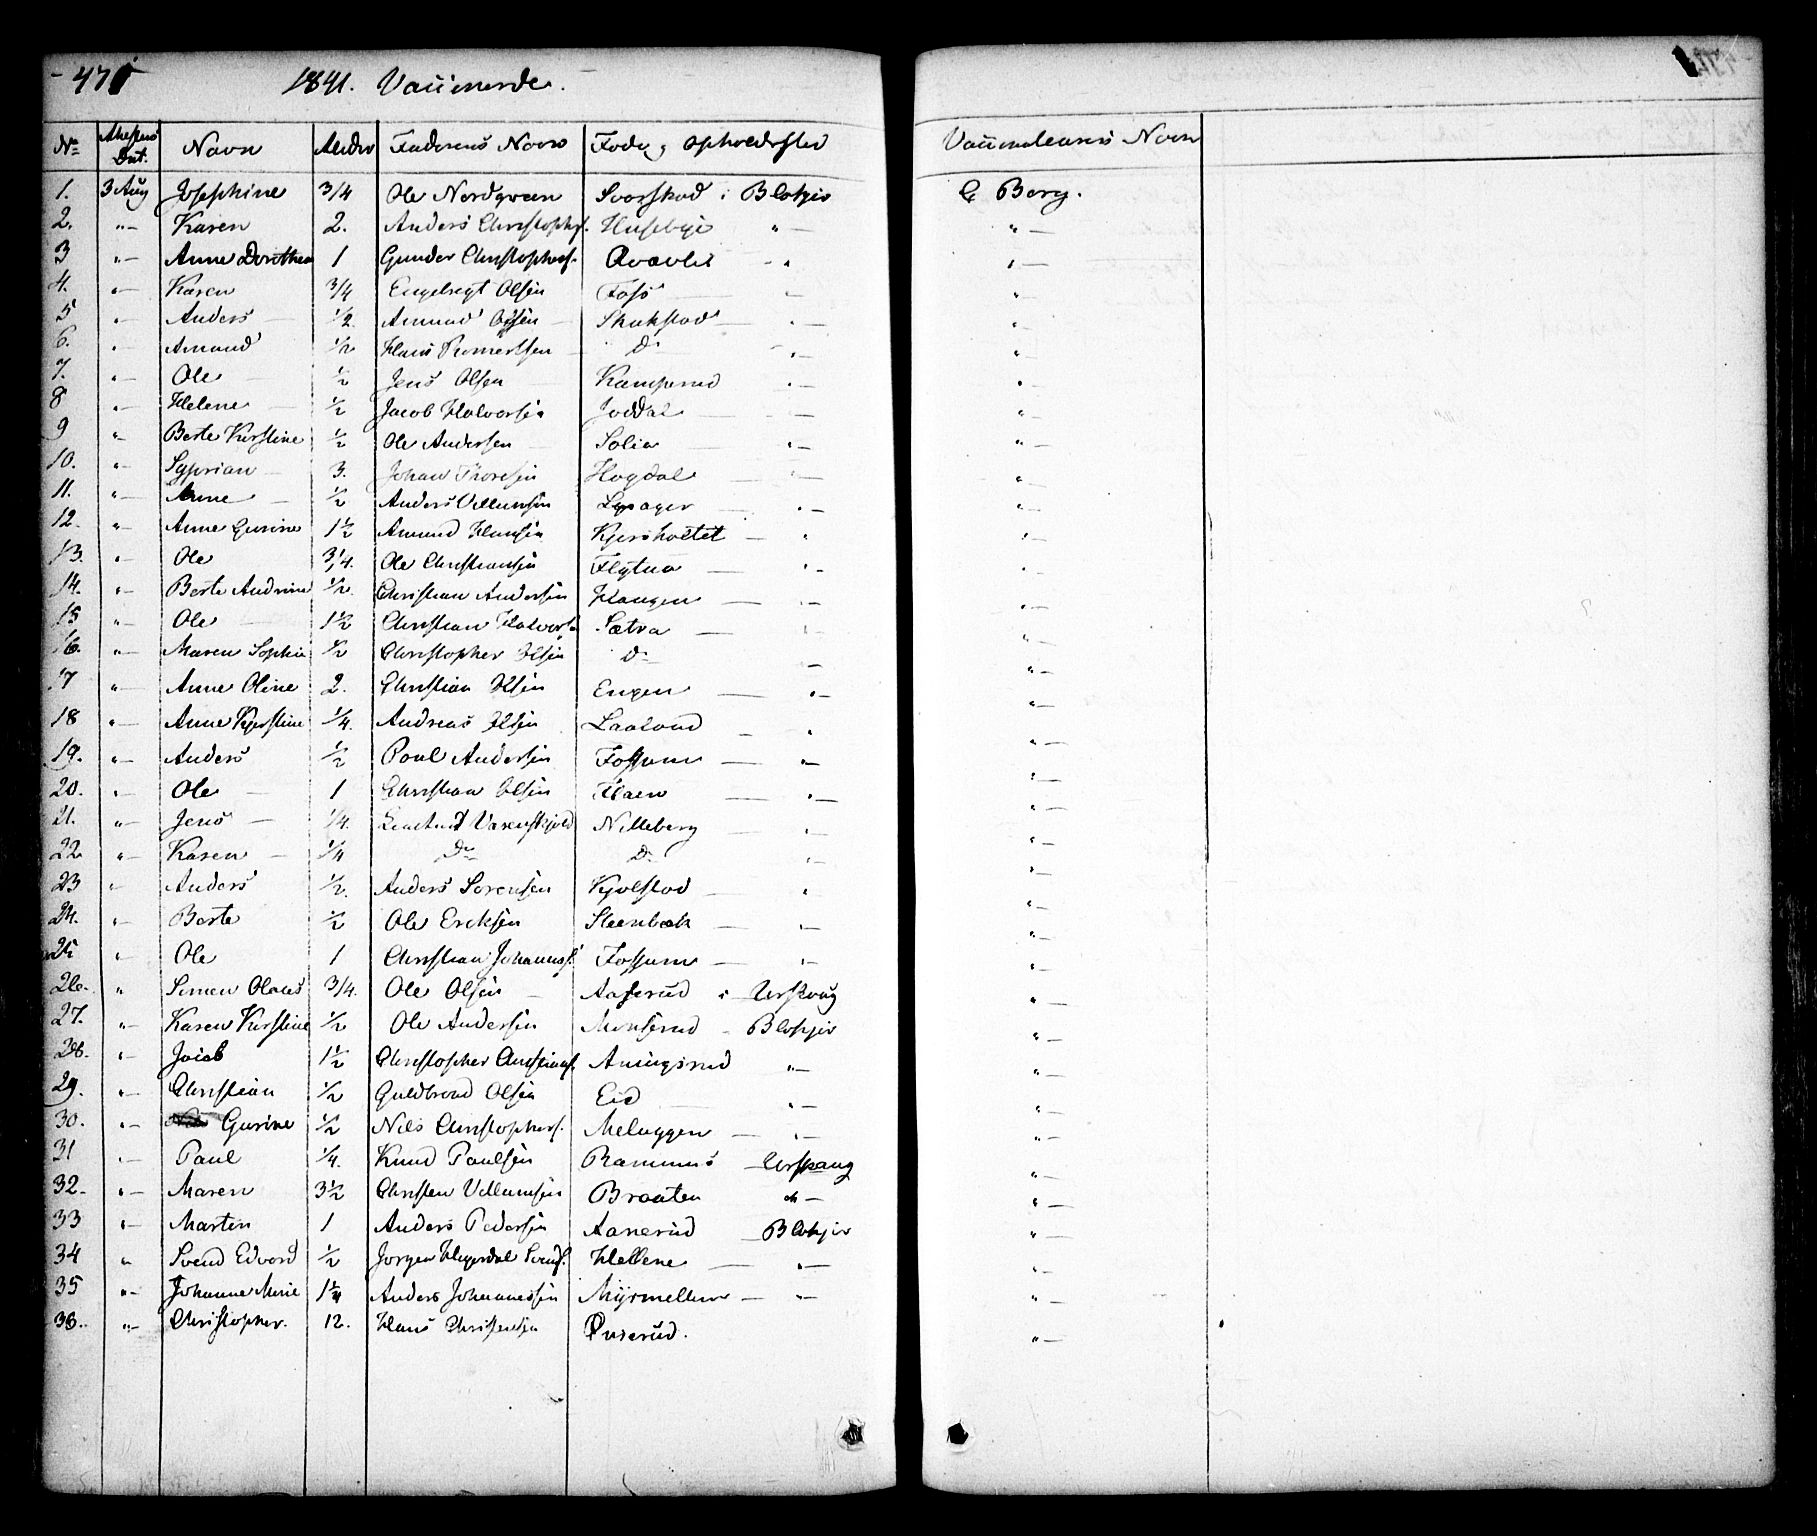 1841. Vaccinerde.
No Attestens Dat. Navn Alder Faderens Navn Føde og Opholdssted Vaccinateurens Navn
1. 3 Aug Josephine 3/4 Ole Nordgreen Svarstad i Blakjer C Berg.
2. " — Karen 2. Anders Christophs. Huseby " — " —
3 " — Anne Dorothea 1 Gunder Christophers. — " " —
4. " — Karen 3/4 Engelregt Olsen Foss — " —
5 " — Anders — 1/2 Amund Olsen — Skukstad — " — " —
6. " Amund 1/2 Hans — Do " — " —
7. " — Ole — 1/2 Jens Olsen — Kamperud " — " —
8 " — Helene — 1/2 Jacob Halvorsen Joddal — " — " —
9 " — Berte Kirstine 1/2 Ole Andersen — Solia " — " —
10. " — Syprian — 3. Johan Thoresen Hogdal " — " —
11. " — Anne — 1/2 Anders Villumsen — " — " —
12. " — Anne Gurine 1 1/2 Amund Hansen Kjersholtet — " " —
13. " — Ole 3/4. Ole Christiansen Flytua — " — " —
14. " — Berte Andrine 1/2. Christian Andersen Haugen — " — " —
15 " — Ole — 1 1/2 Christian Halvors. Sætra — " — " —
16. " — Maren Sophie 1/2 Christopher Olsen Do — " —
17 " — Anne Oline 2. Christian Olsen Engen — " — " —
18 " — Anne Kjerstine 1/4. Andreas Olsen — " " —
19. " — Anders 1/2 Poul Andersen Fossum — " — " —
20. " — Ole — 1 Christian Olsen Haen — " — " —
21. " — Jens — 1/4. Vasenskjold Nilleberg — " — " —
22 " — Karen — 1/4 Do Do " — " —
23 " — Anders 1/2. Anders Sørensen Kjølstad — " " —
24. " — Berte 1/2 Ole Ericksen Steenbæk — " — " —
25 " — Ole 1 Christian Johanness. Fossum — " — " —
26. " Simen Olaus 3/4. Ole Olsen — Aaserud i Urskoug " —
27. " — Karen Kirstine 1/2 Ole Andersen Monserud — Blakjer " —
28. " — Jacob 1 1/2 Christopher Christians. " — " —
29. " — Christian 1/2 Guldbrand Olsen Eid — " — " —
30. " — Gurine 1/2 Nils Christophers. Meluggen — " — " —
31 " — Paul 1/4. Knud Paulsen — Urskoug " —
32. " — Maren 3 1/2 Christen Villumsen Braaten " — " —
33 " — Martin 1 Anders Pedersen Aanerud — Blakjer " —
34 " Svend Edvard 1/2 Jørgen Svends. Hellene — " — " —
35 " — Johanne Marie 1 1/4 Anders Johannessen — " — " —
36. " — Christopher. 12. Hans Christensen " —